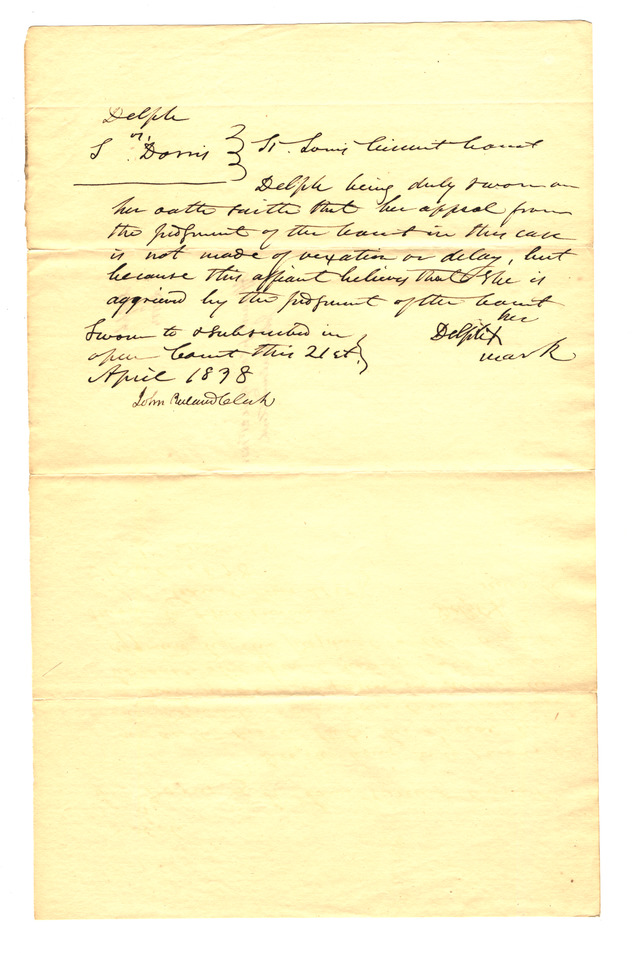 Delph
vs.
S Dorris } St. Louis Circuit Court
Delph being duly sworn on
her oath saith that her appeal from
the judgment of the Court in this case
is not made of vexation or delay, but
because this affiant believes that She is
aggrieved by the judgment of the Court
Sworn to & subscribed in
open Court this 21st
April 1838
John Ruland Clerk
her
Delph X
mark